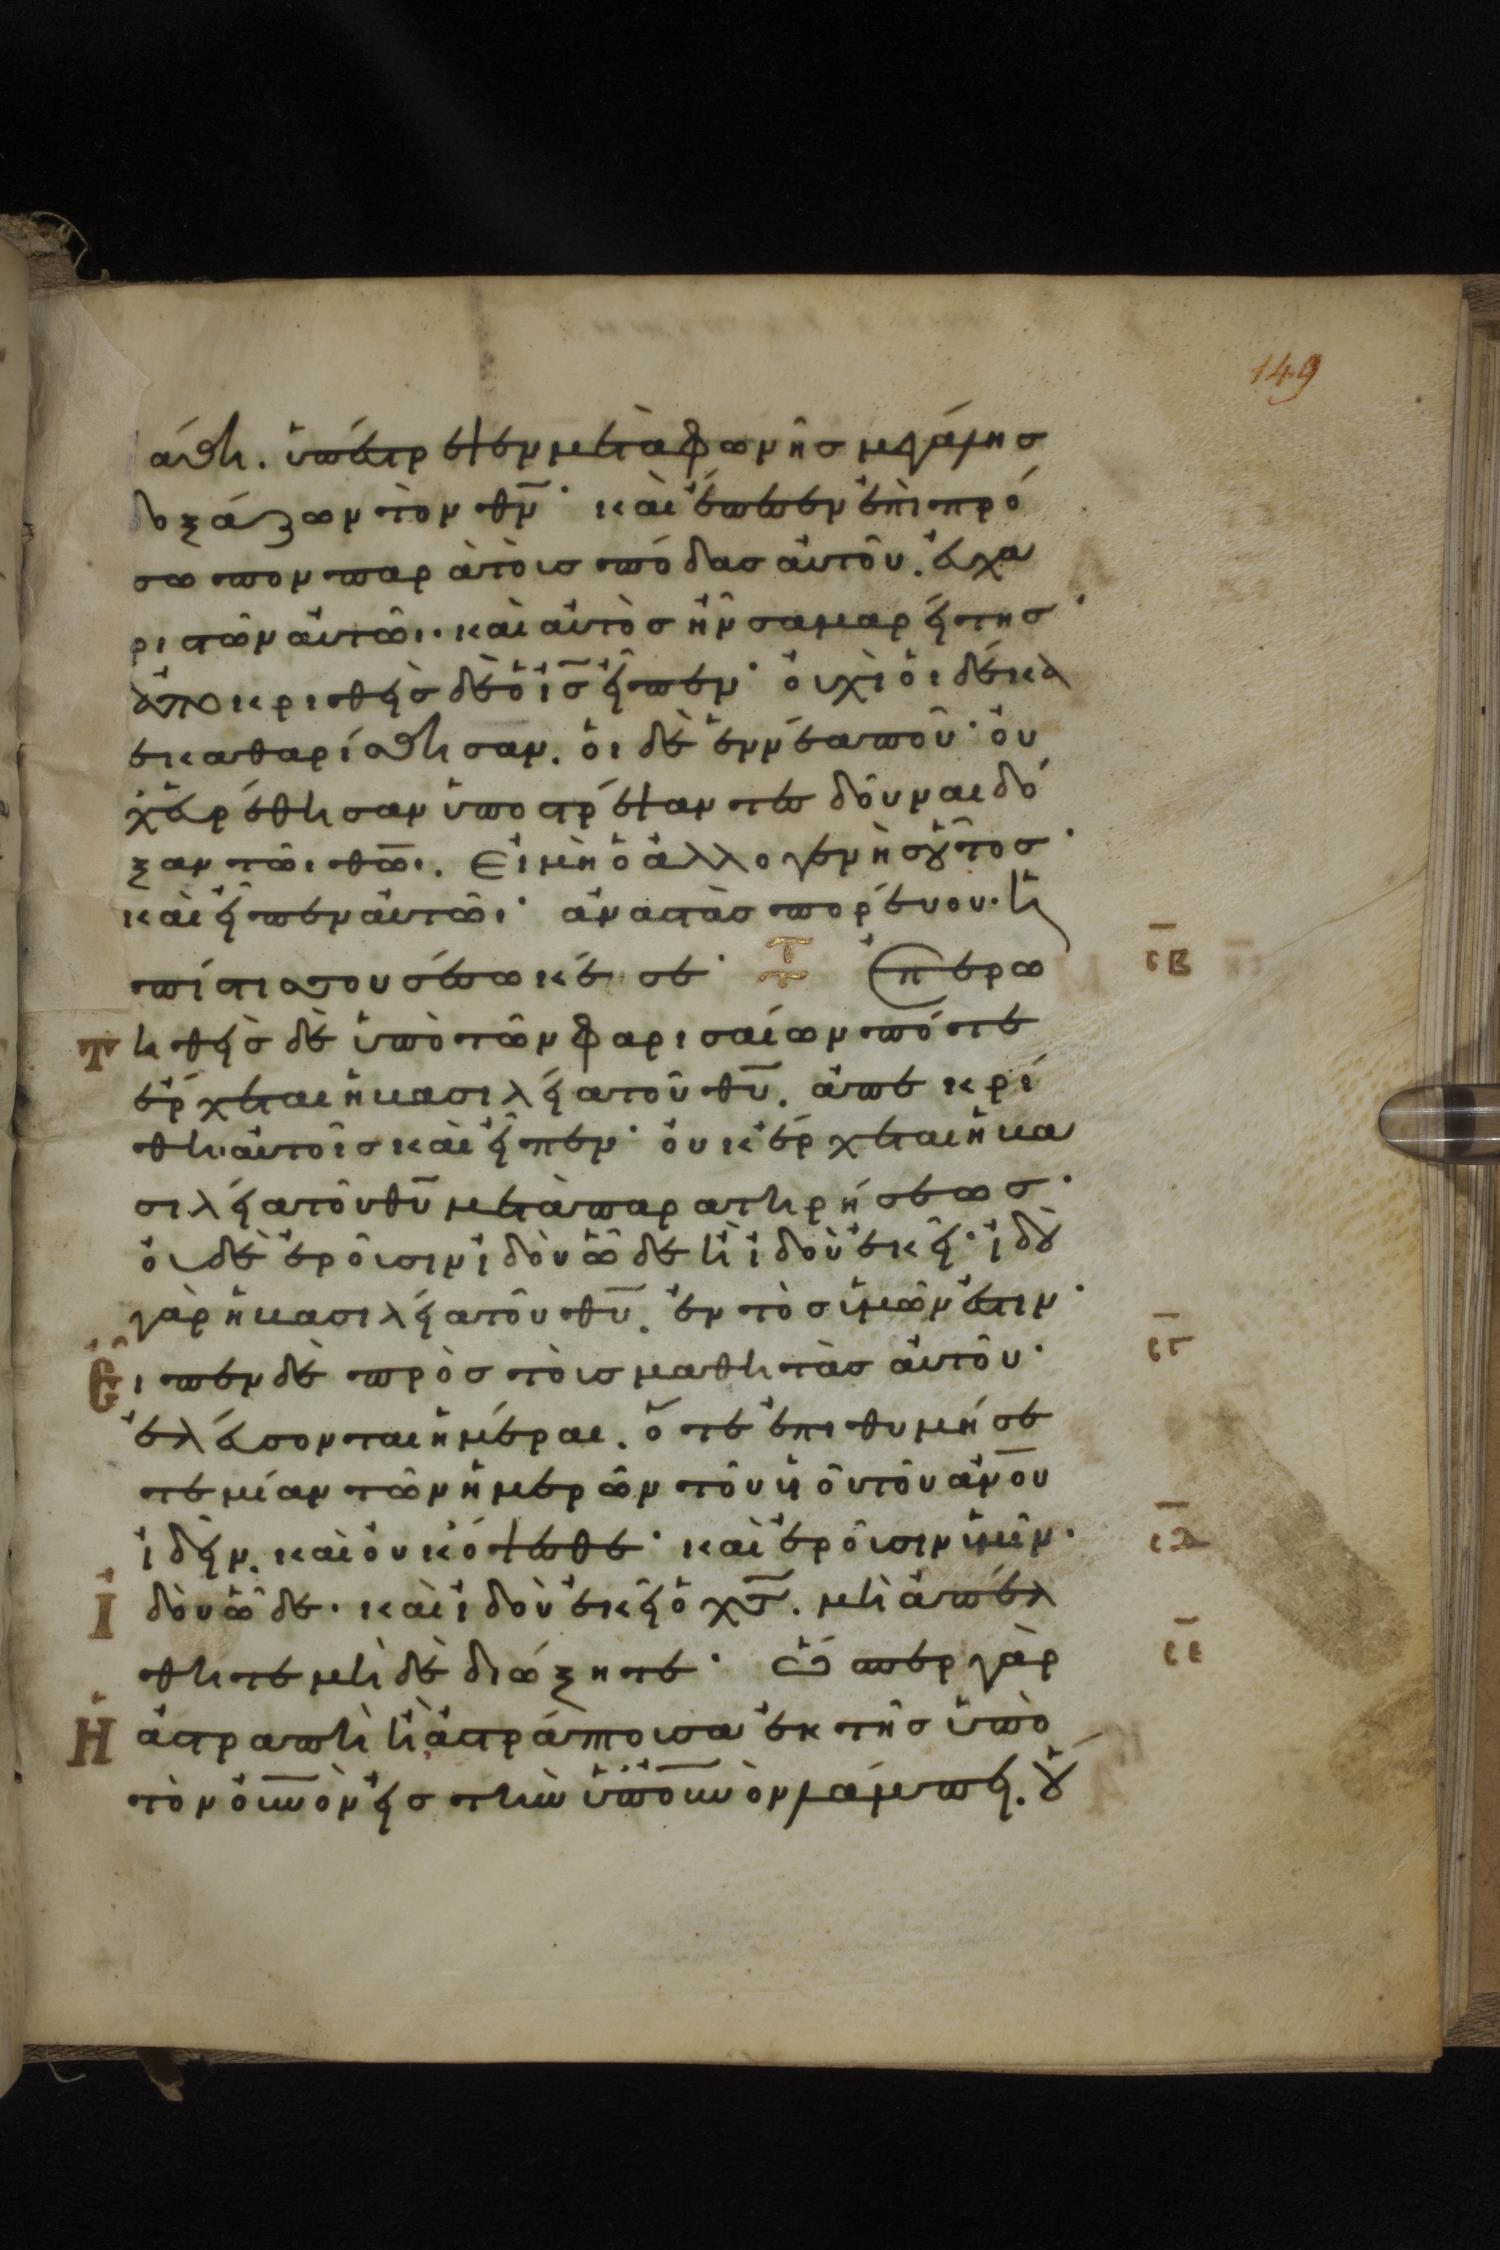 149
άθη. ὑπέστρεψεν μετὰ φωνῆς μεγάλης
δοξάζων τὸν θ̅ν̅· καὶ ἔπεσεν ἐπὶ πρό
σωπον παρὰ τοὺς πόδας αὐτοῦ. εὐχα
ριστῶν αὐτῶι. καὶ αὐτὸς ἦν σαμαρείτης·
ἀποκριθεὶς δὲ ὁ ι̅ς̅ εἶπεν· οὐχὶ οἱ δέκα
ἐκαθαρίσθησαν. οἱ δὲ ἐννέα ποῦ· οὐ
χ εὑρέθησαν ὑποστρέψαντες δοῦναι δό
ξαν τῶι θ̅ω̅ι. Εἰ μὴ ὁ ἀλλογενὴς οὗτος·
καὶ εἶπεν αὐτῶι· ἀναστὰς πορεύου. ἡ
πίστις σου σέσωκέ σε· Τ Ἐπερω ι̅β̅
τηθεὶς δὲ ὑπὸ τῶν φαρισαίων πότε
ἔρχεται ἡ βασιλεία τοῦ θ̅υ̅. ἀπεκρί
θη αὐτοῖς καὶ εἶπεν· οὐκ ἔρχεται ἡ βα
σιλεία τοῦ θ̅υ̅ μετὰ παρατηρήσεως·
οὐδὲ ἐροῦσιν ἰδοὺ ὧδε ἢ ἰδοὺ ἐκεῖ· ἰδοὺ
γὰρ ἡ βασιλεία τοῦ θ̅υ̅. ἐντὸς ὑμῶν ἐστιν·
Εἶπεν δὲ πρὸς τοὺς μαθητὰς αὐτοῦ· ι̅γ̅
ἐλεύσονται ἡμέραι. ὅτε ἐπιθυμήσε
τε μίαν τῶν ἡμερῶν τοῦ υἱοῦ τοῦ α̅ν̅ο̅υ̅
ἰδεῖν. καὶ οὐκ ὄψεσθε· καὶ ἐροῦσιν ὑμῖν· ι̅δ̅
Ἰδοὺ ὧδε. καὶ ἰδοὺ ἐκεῖ ὁ χ̅ς̅. μὴ ἀπέλ
θητε μηδὲ διώξητε· Ὥσπερ γὰρ ι̅ε̅
Ἡ ἀστραπὴ ἡ ἀστράπτουσα ἐκ τῆς ὑπὸ
τὸν ο̅υ̅ν̅ὸν εἰς τὴν ὑπ' ο̅υ̅ν̅ὸν λάμπει. οὕ